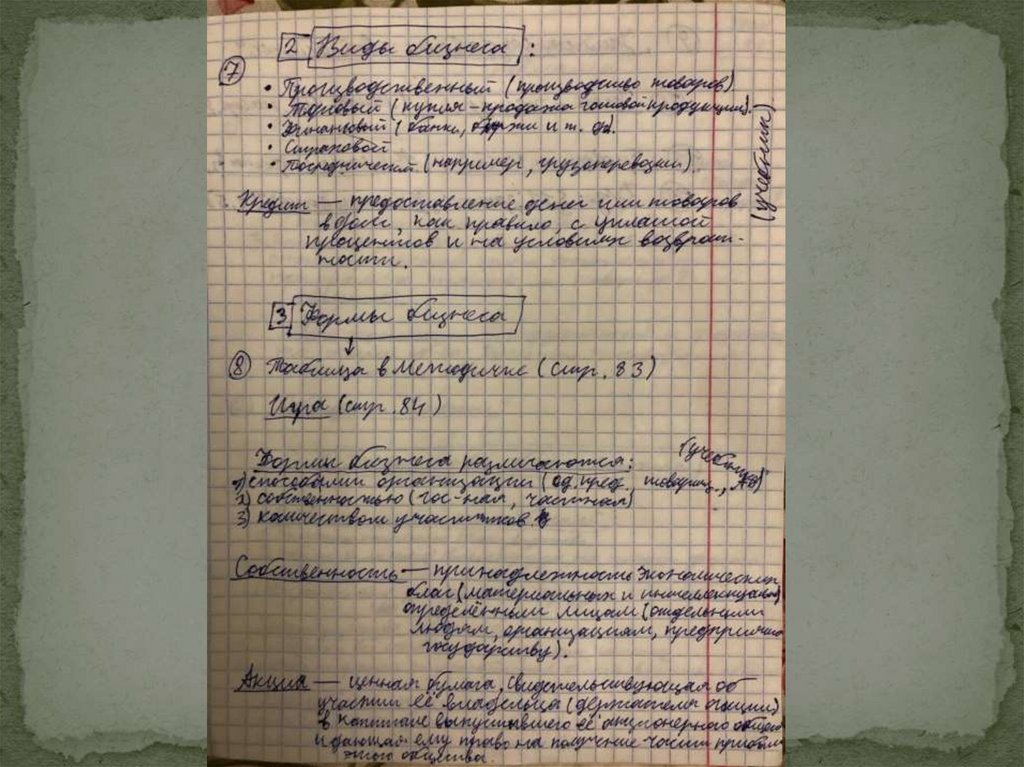 2 Виды бизнеса :
7
• Производственный (производство товаров)
• Торговый (купля-продажа готовой продукции).
• Финансовый (банки, биржи и т. д.).
• Страховой
• Посреднический (например, грузоперевозки).
(учебник)
Кредит — предоставление денег или товаров
в долг, как правило, с уплатой
процентов и на условиях возврат-
ности.
3 Формы бизнеса
8 Таблица в методичке (стр. 83)
Игра (стр. 84)
Формы бизнеса различаются: (учебник)
1) способами организации (ед. пред., товарищ., АО)
2) собственностью (гос-ная, частная)
3) количеством участников
Собственность — принадлежность экономических
благ (материальных и интеллектуальн)
определёнными лицам (отдельными
людям, организациям, предприятия
государству).
Акция — ценная бумага, свидетельствующая об
участии её владельца (держателя акции)
в капитале выпустившего её акционерного общес
и дающая ему право на получение части прибыли
этого общества.